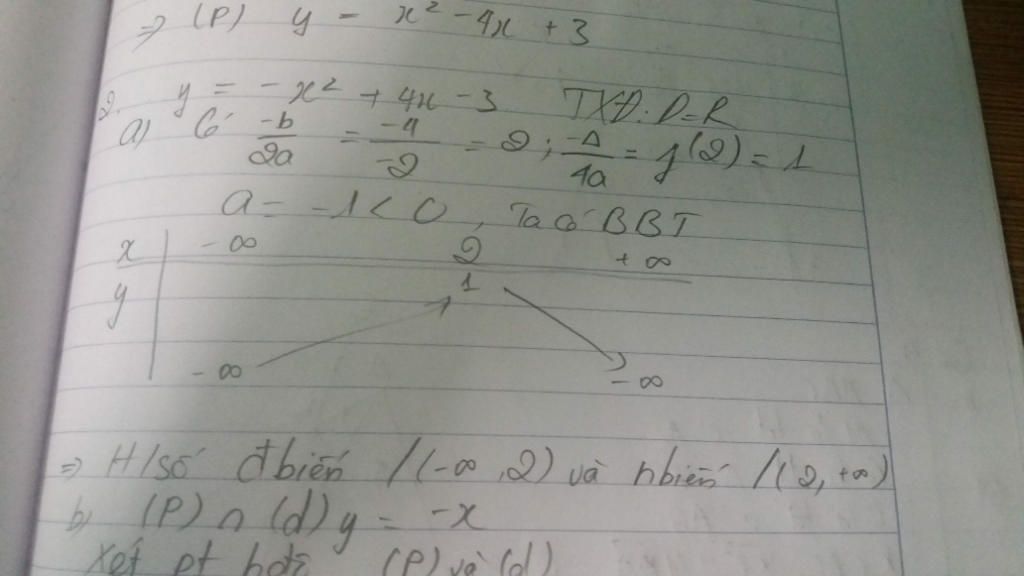 => (P) y = x² - 4x + 3
2. y = -x² + 4x - 3 TXĐ: D=R
a) Có -b/2a = -4/-2 = 2 ; -Δ/4a = f(2) = 1
a = -1 < 0, Ta có BBT
x -∞ 2 +∞
y 1
-∞ -∞
=> H/số đbiến /(-∞,2) và nbiến /(2,+∞)
b) (P) ∩ (d) y = -x
Xét pt hđгđ (P) và (d)